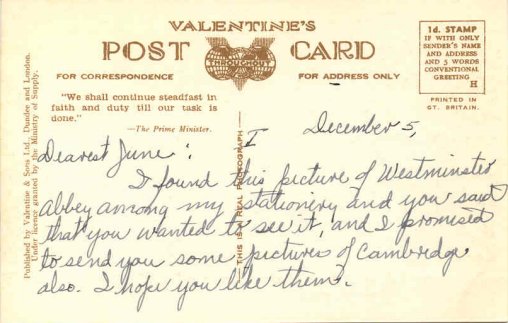 VALENTINE'S
POST CARD
THROUGHOUT
FOR CORRESPONDENCE
FOR ADDRESS ONLY
1d. STAMP
IF WITH ONLY
SENDER'S NAME
AND ADDRESS
AND 5 WORDS
CONVENTIONAL
GREETING
H
PRINTED IN
GT. BRITAIN.
"We shall continue steadfast in
faith and duty till our task is
done."
—The Prime Minister.
Published by Valentine & Sons Ltd., Dundee and London.
Under licence granted by the Ministry of Supply.
THIS IS A REAL PHOTOGRAPH
I
December 5,
Dearest June:
I found this picture of Westminster
abbey among my stationery and you said
that you wanted to see it, and I promised
to send you some pictures of Cambridge
also. I hope you like them.